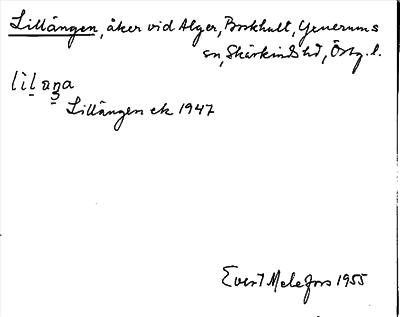 Lillängen, åker vid Alger, Borkhult, Yxnerums
sn, Skärkinds hd, Östg. l.
lìlaŋa
Lillängen ek 1947
Evert Melefors 1955